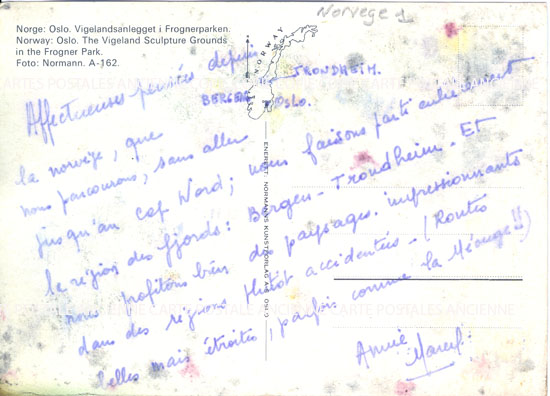 Norge: Oslo. Vigelandsanlegget i Frognerparken.
Norway: Oslo. The Vigeland Sculpture Grounds
in the Frogner Park.
Foto: Normann. A-162.
Norvege 1
NORWAY
TRONDHEIM.
BERGEN
OSLO.
Affectueuses pensées depuis
la norvège, que
nous parcourons, sans aller
jusqu'au cap Nord; nous faisons partie
la région des fjords: Bergen - Trondheim - ET
nous profitons bien de paysages impressionnants
dans des régions plutôt accidentées - (Routes
belles mais étroites, parfois comme la Méouge!!)
Annie
Marcel.
ENERETT: NORMANNS KUNSTFORLAG A/S, OSLO
CARTE POSTALES ANCIENNES